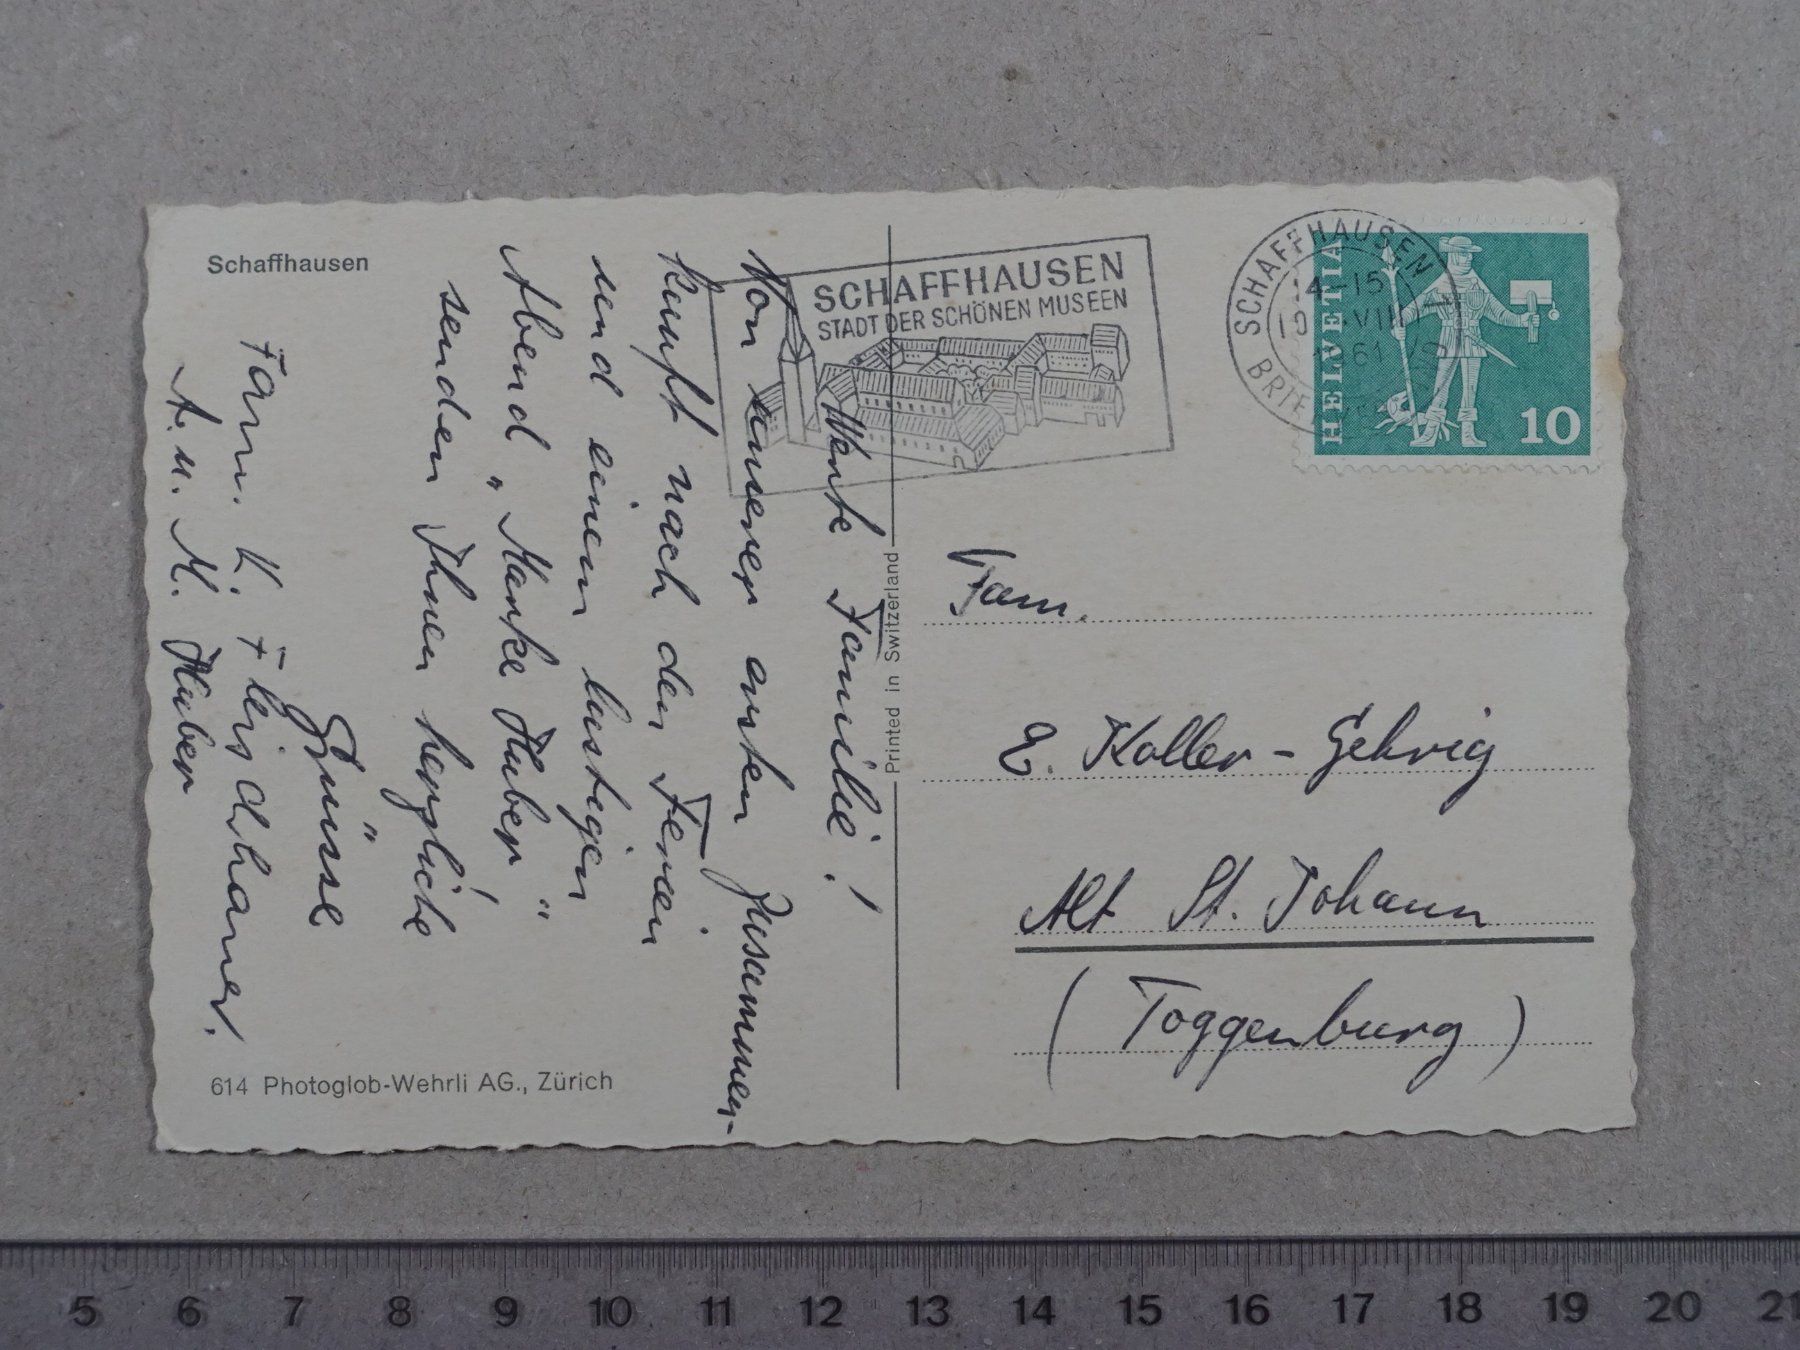 Schaffhausen
Werte Familie!
Von unserer ersten Zusammen-
kunft nach den Ferien
und einem lustigen
Abend „Marke Huber“,
senden Ihnen herzliche
Grüsse
Fam. K. Fleischhauer.
A. u. M. Huber
614 Photoglob-Wehrli AG., Zürich
Printed in Switzerland
SCHAFFHAUSEN
STADT DER SCHÖNEN MUSEEN
SCHAFFHAUSEN
-15
VIII
61
HELVETIA
10
Fam.
E. Koller-Gehrig
Alt St. Johann
(Toggenburg)
5 6 7 8 9 10 11 12 13 14 15 16 17 18 19 20 21